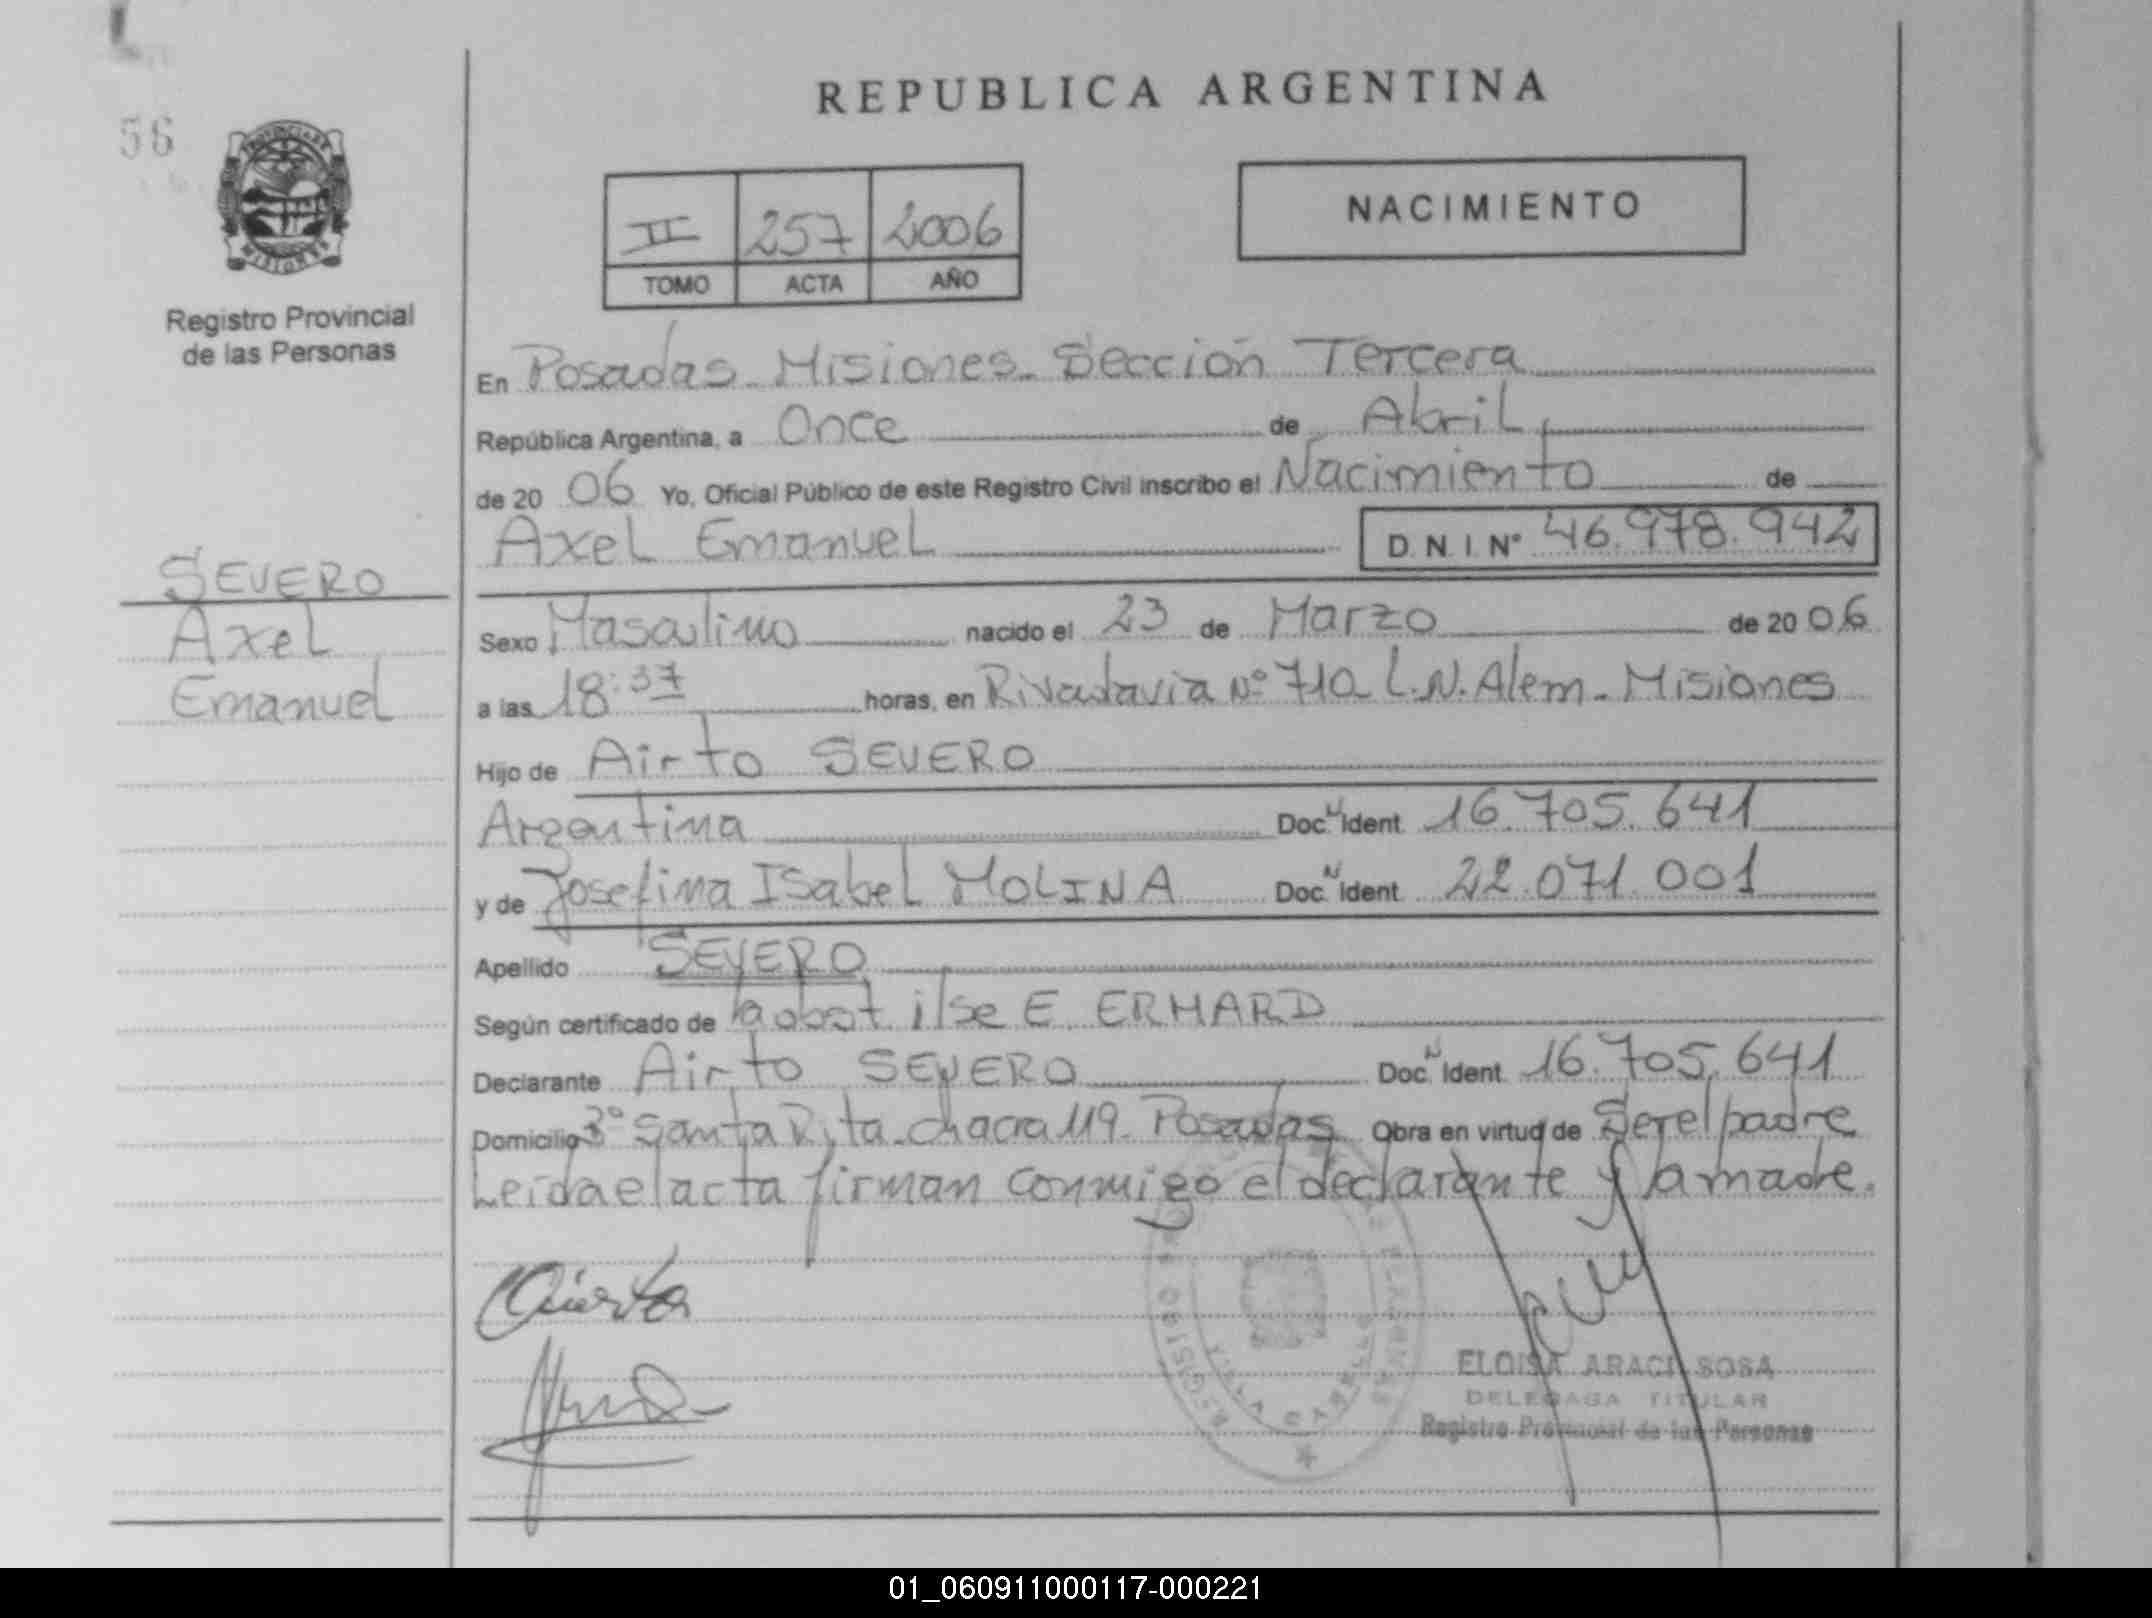 56
REPUBLICA ARGENTINA
PROVINCIA DE
MISIONES
Registro Provincial
de las Personas
II 257 2006
TOMO ACTA AÑO
NACIMIENTO
En Posadas Misiones Sección Tercera
República Argentina, a Once de Abril
de 20 06 Yo, Oficial Público de este Registro Civil inscribo el Nacimiento de
Axel Emanuel D.N.I. Nº 46.978.942
SEVERO
Axel
Emanuel
Sexo Masculino nacido el 23 de Marzo de 20 06
a las 18:37 horas, en Rivadavia Nº 710 L.N. Alem - Misiones
Hijo de Airto SEVERO
Argentina Doc. N Ident 16.705.641
y de Josefina Isabel MOLINA Doc. N Ident 22.071.001
Apellido SEVERO
Según certificado de obst ilse E ERHARD
Declarante Airto SEVERO Doc. N Ident 16.705.641
Domicilio Bº Santa Rita - chacra 119 - Posadas Obra en virtud de Ser el padre
Leída el acta firman conmigo el declarante y la madre.
ELOISA ARACI SOSA
DELEGADA TITULAR
Registro Provincial de las Personas
01_060911000117-000221